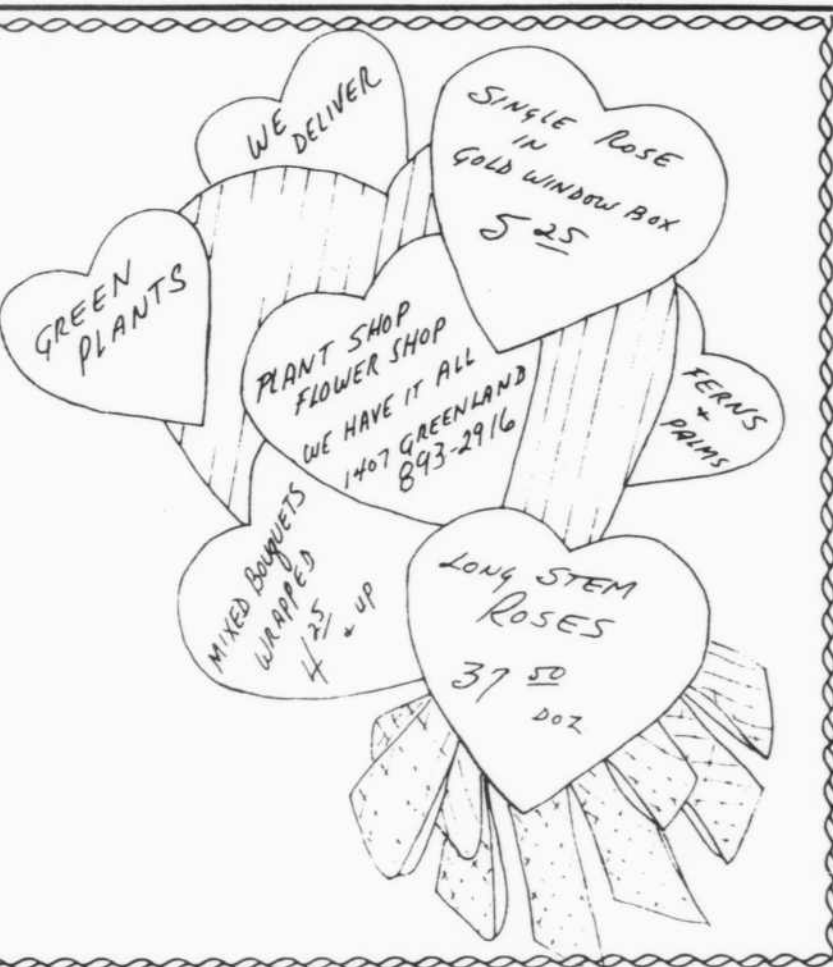 WE
DELIVER
SINGLE ROSE
IN
GOLD WINDOW BOX
5 25
GREEN
PLANTS
PLANT SHOP
FLOWER SHOP
WE HAVE IT ALL
1407 GREENLAND
893-2916
FERNS
+
PALMS
MIXED BOUQUETS
WRAPPED
4 25 + UP
LONG STEM
ROSES
37 50
DOZ